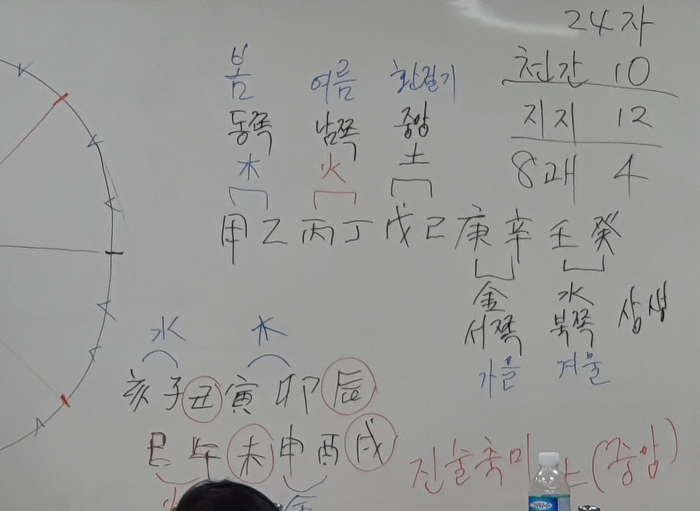 24자
천간 10
지지 12
8괘 4
봄 여름 환절기
동쪽 남쪽 중앙
木 火 土
甲乙丙丁戊己庚辛壬癸
金 水
서쪽 북쪽 상생
가을 겨울
水 木
亥子丑寅卯辰
巳午未申酉戌
진술축미
(중앙)